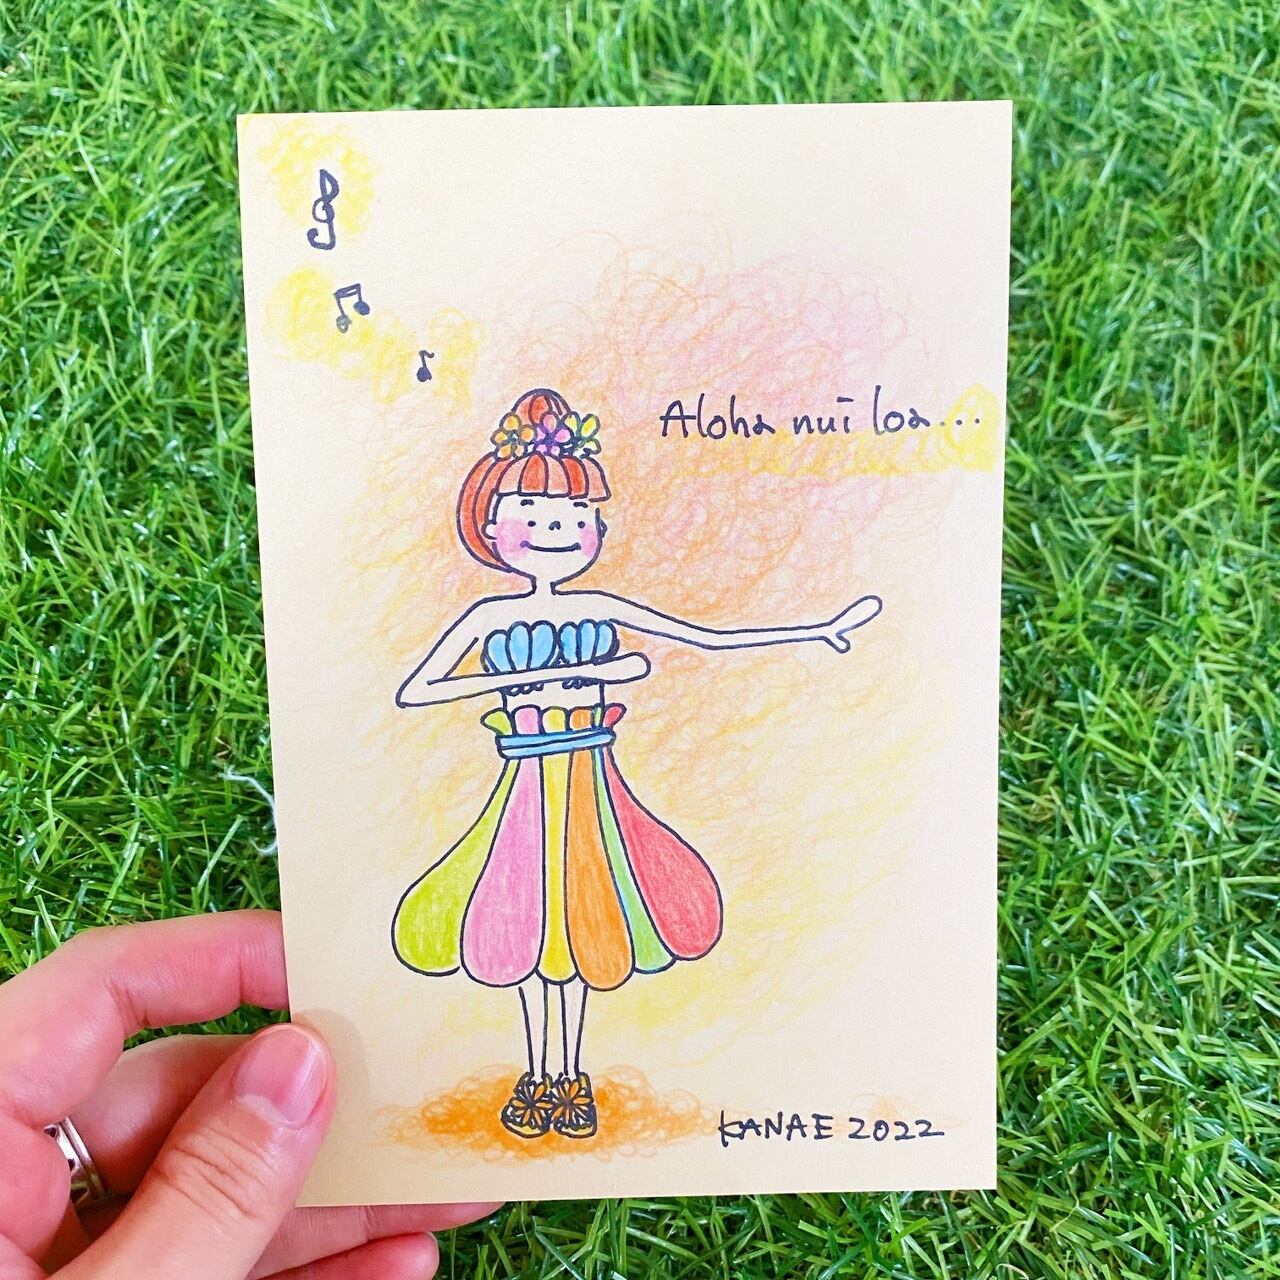 Aloha nui loa...
KANAE 2022